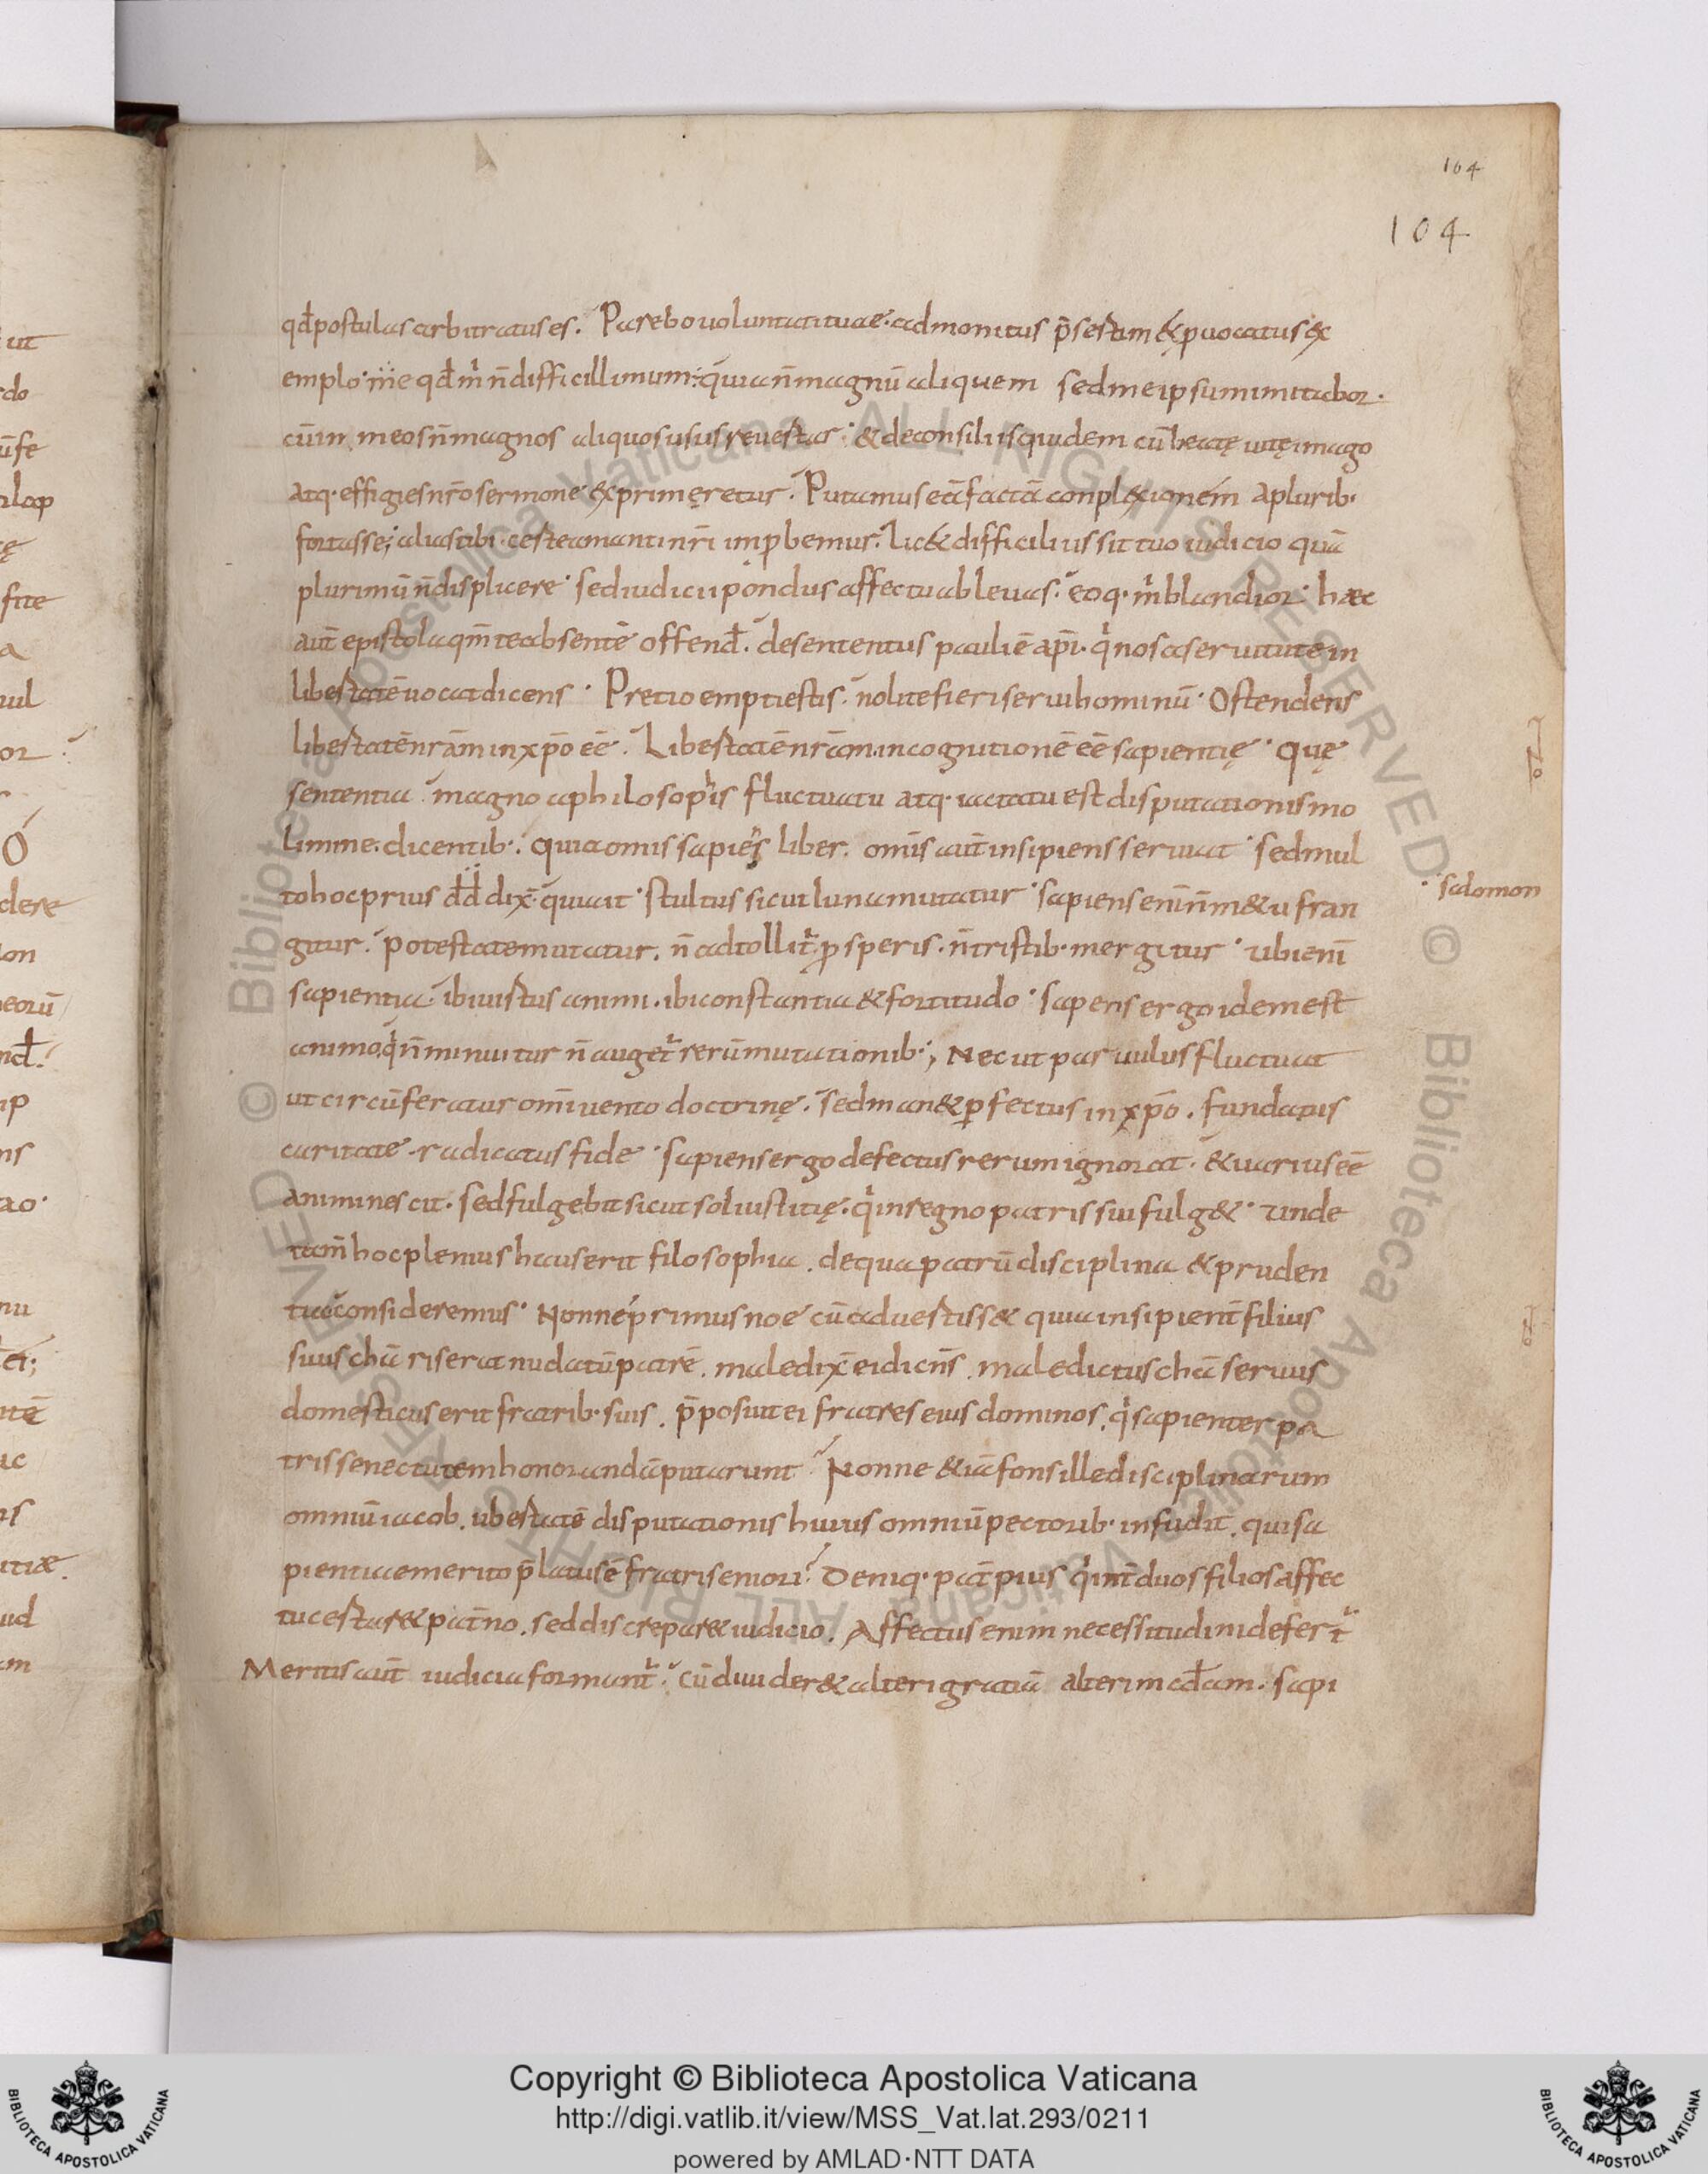 104
104
qđ postulas arbitratus es. Parebo uoluntati tuae. admonitus p̄sertim & puocatus ex
emplo me qđ m̄ n̄ difficillimum: quia n̄ magnū aliquem sed me ipsum imitabor.
cūin meos n̄ magnos aliquos usus reuertar. & de consiliis quidem cū beatę uitę imago
atq. effigies nr̄o sermone exprimeretur. Putamus eā factā conplexionem a plurib.
fortasse; alias tibi certe amanti nr̄i improbemur. Lic& difficilius sit tuo iudicio quā
plurimū n̄ displicere. sed iudicii pondus affectu ableuas. eoq. m̄ blandior. haec
aut̄ epistola qm̄ te absentē offend̄. de sententiis pauli ē ap̄i. q nos a seruitute in
libertatē uocat dicens. Pretio empti estis. nolite fieri serui hominū. Ostendens
libertatē nr̄am in xp̄o eē. Libertatē nr̄am in cognitionē eē sapientię. Quę
sententia magno a philosopis fluctuatu atq. iactatu est disputationis mo
limine. dicentib. quia omis sapiens liber. omīs aut̄ insipiens seruiat. sed mul
to hoc prius dd̄ dix̄. quiait. stultus sicut luna mutatur. sapiens enī n̄ m&u fran
· salomon
gitur. potestate mutatur. n̄ adtollit̄ psperis. n̄ tristib. mergitur. ubi enī
sapientia. ibi uirtus animi. ibi constantia & fortitudo. sapens ergo idem est
animo q n̄ minuitur n̄ auget̄ rerū mutationib; Nec ut paruulus fluctuat
ut circūferatur omī uento doctrinę. sed man& pfectus in xp̄o. fundatus
caritate. radicatus fide. sapiens ergo defectus rerum ignorat. & uarius eē
animi nescit. sed fulgebit sicut sol iustitię. q in regno patris sui fulg&. Unde
tam̄ hoc plenius hauserit filosophia. de qua patrū disciplina & pruden
tia consideremus. Nonne primus noe cū aduertiss& quia insipient̄ filius
suus chā riserat nudatū patrē. maledix̄ ei dicn̄s. maledictus chā seruus
domesticus erit fratrib. suis. p̄posuit ei fratres eius dominos. q sapienter pa
tris senectutem honorandā putarunt. Nonne & iā fons ille disciplinarum
omniū iacob. ubertatē disputationis huius omniū pectorib. infudit. qui sa
pientiae merito p̄latus ē fratri seniori? Deniq. pat̄ pius q int̄ duos filios affec
tu certar& pat̄no. sed discrepar& iudicio. Affectus enim necessitudini defert̄
Meritis aut̄ iudicia formant̄. Cū diuider& alteri gratiā alteri mad̄am. sapi
ut
do
ūfe
ę
fite
a
uul
or
Ó
dere
lon
eorū
nd̄.
ip
ns
ao.
nu
ei;
ntē
ac
ns
itiae.
ud
m
Copyright © Biblioteca Apostolica Vaticana
http://digi.vatlib.it/view/MSS_Vat.lat.293/0211
powered by AMLAD·NTT DATA
BIBLIOTECA APOSTOLICA VATICANA
BIBLIOTECA APOSTOLICA VATICANA
© Biblioteca Apostolica Vaticana ALL RIGHTS RESERVED
© Biblioteca Apostolica Vaticana ALL RIGHTS RESERVED